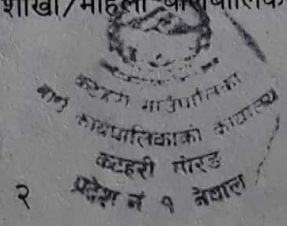 शाखा/महिला बालबालिक
कटहरी गाउँपालिका
गाउँ कार्यपालिकाको कार्यालय
कटहरी मोरङ
२
प्रदेश नं १ नेपाल